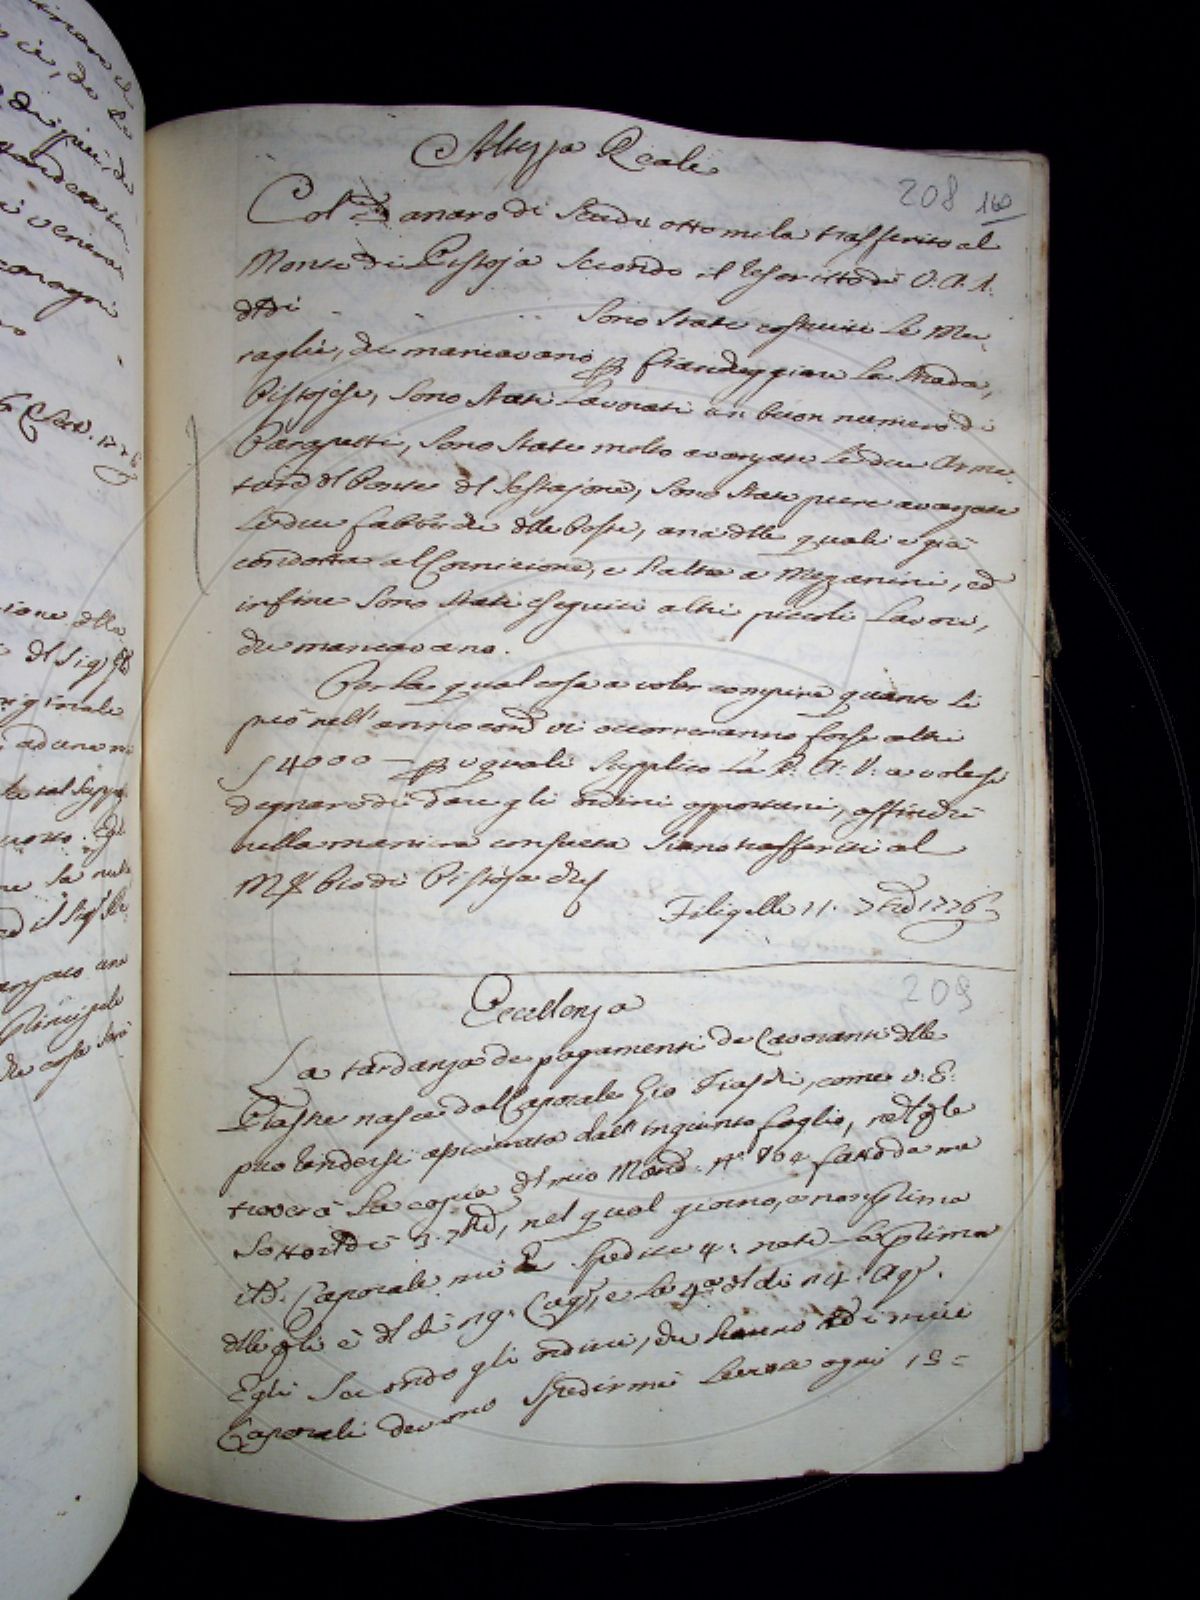 Altezza Reale
208 160
Col danaro di Scudi ottomila trasferito al
Monte di Pistoja secondo il Rescritto di V. A. R.
de dì . . . Sono state costruite le Mu-
raglie, che mancavano p fiancheggiare la Strada
Pistojese, sono stati lavorati un buon numero di
Parapetti, sono state molto avanzate le due Arma-
ture del Ponte del Sestajone, sono state pure avanzate
le due fabbriche delle Poste, una delle quali è già
condotta al Cornicione, e l'altra a Mezzanini, ed
infine sono stati eseguiti altri piccoli lavori,
che mancavano.
Per la qual cosa a voler compire quanto si
può nell'anno corre vi occorreranno forse altri
∫ 4000 — p i quali supplico la R. A. V. a volersi
degnare di dare gli ordini opportuni, affinchè
nella maniera consueta siano trasferiti al
Mte Pio di Pistoja
Filigelle 11. 7bre 1776
209
Eccellenza
La tardanza de pagamenti de Lavoranti delle
Piastre nasce dal Caporale Gio , come V. E.
può rendersi assicurata dall'ingiunto foglio, nel qle
troverà la copia del mio Mand. N° 704 fatto da me
sotto il dì 3. 7bre, nel qual giorno, e non prima
il d. Caporale mi spedite 4: note la prima
delle qli è del dì 19: Lugl, e la 4a del dì 14: Ago.
Egli secondo gli ordini, che hanno i miei
Caporali devono spedirmi ogni 15 =